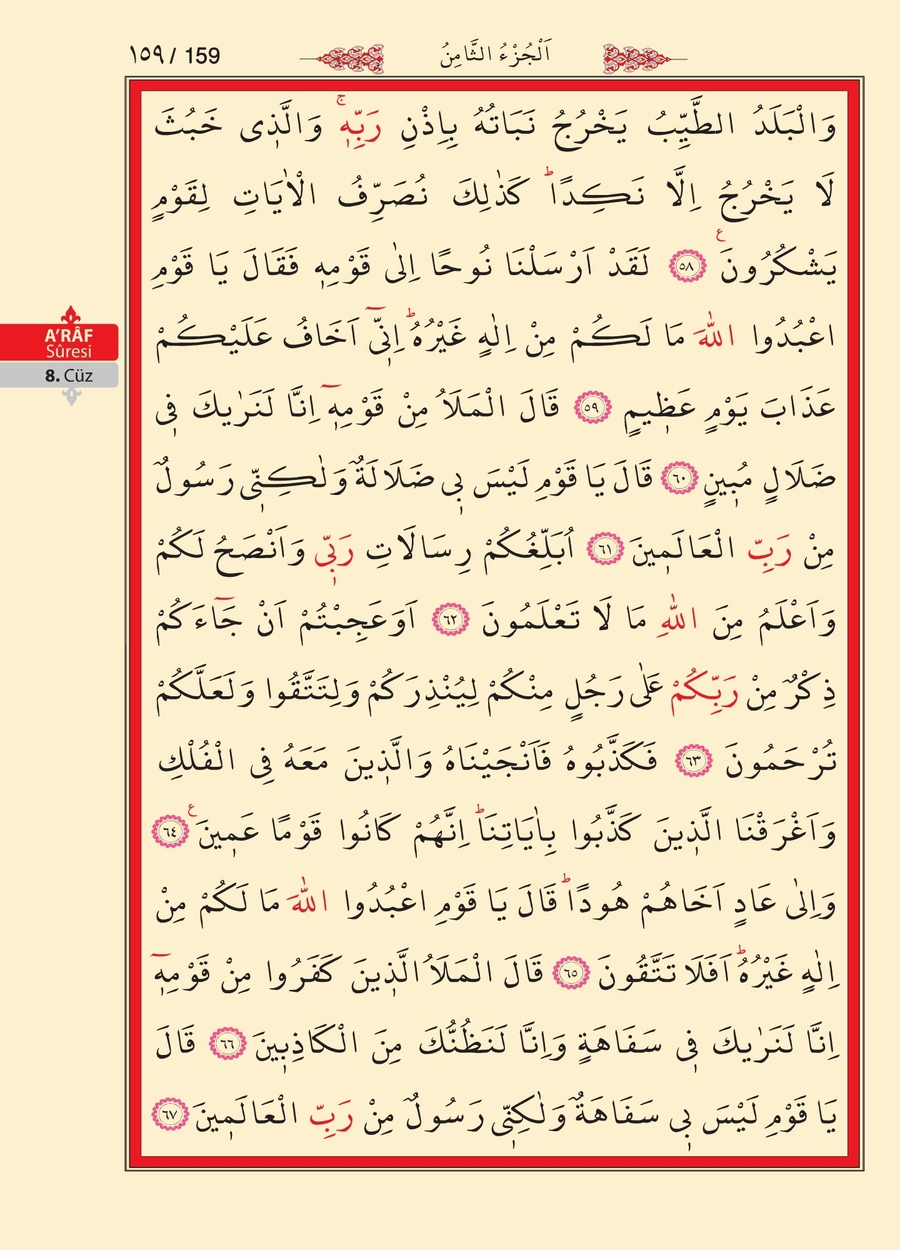 ١٥٩ / 159
اَلْجُزْءُ الثَّامِنُ
وَالْبَلَدُ الطَّيِّبُ يَخْرُجُ نَبَاتُهُ بِاِذْنِ رَبِّه۪ۚ وَالَّذ۪ى خَبُثَ
لَا يَخْرُجُ اِلَّا نَكِدًاۜ كَذٰلِكَ نُصَرِّفُ الْاٰيَاتِ لِقَوْمٍ
يَشْكُرُونَ ع ٥٨ لَقَدْ اَرْسَلْنَا نُوحًا اِلٰى قَوْمِه۪ فَقَالَ يَا قَوْمِ
اعْبُدُوا اللّٰهَ مَا لَكُمْ مِنْ اِلٰهٍ غَيْرُهُۜ اِنّ۪ٓى اَخَافُ عَلَيْكُمْ
عَذَابَ يَوْمٍ عَظ۪يمٍ ٥٩ قَالَ الْمَلَاُ مِنْ قَوْمِه۪ٓ اِنَّا لَنَرٰيكَ ف۪ى
ضَلَالٍ مُب۪ينٍ ٦٠ قَالَ يَا قَوْمِ لَيْسَ ب۪ى ضَلَالَةٌ وَلٰكِنّ۪ى رَسُولٌ
مِنْ رَبِّ الْعَالَم۪ينَ ٦١ اُبَلِّغُكُمْ رِسَالَاتِ رَبّ۪ى وَاَنْصَحُ لَكُمْ
وَاَعْلَمُ مِنَ اللّٰهِ مَا لَا تَعْلَمُونَ ٦٢ اَوَعَجِبْتُمْ اَنْ جَٓاءَكُمْ
ذِكْرٌ مِنْ رَبِّكُمْ عَلٰى رَجُلٍ مِنْكُمْ لِيُنْذِرَكُمْ وَلِتَتَّقُوا وَلَعَلَّكُمْ
تُرْحَمُونَ ٦٣ فَكَذَّبُوهُ فَاَنْجَيْنَاهُ وَالَّذ۪ينَ مَعَهُ فِى الْفُلْكِ
وَاَغْرَقْنَا الَّذ۪ينَ كَذَّبُوا بِاٰيَاتِنَاۜ اِنَّهُمْ كَانُوا قَوْمًا عَم۪ينَ ع ٦٤
وَاِلٰى عَادٍ اَخَاهُمْ هُودًاۜ قَالَ يَا قَوْمِ اعْبُدُوا اللّٰهَ مَا لَكُمْ مِنْ
اِلٰهٍ غَيْرُهُۜ اَفَلَا تَتَّقُونَ ٦٥ قَالَ الْمَلَاُ الَّذ۪ينَ كَفَرُوا مِنْ قَوْمِه۪ٓ
اِنَّا لَنَرٰيكَ ف۪ى سَفَاهَةٍ وَاِنَّا لَنَظُنُّكَ مِنَ الْكَاذِب۪ينَ ٦٦ قَالَ
يَا قَوْمِ لَيْسَ ب۪ى سَفَاهَةٌ وَلٰكِنّ۪ى رَسُولٌ مِنْ رَبِّ الْعَالَم۪ينَ ٦٧
A'RÂF
Sûresi
8. Cüz